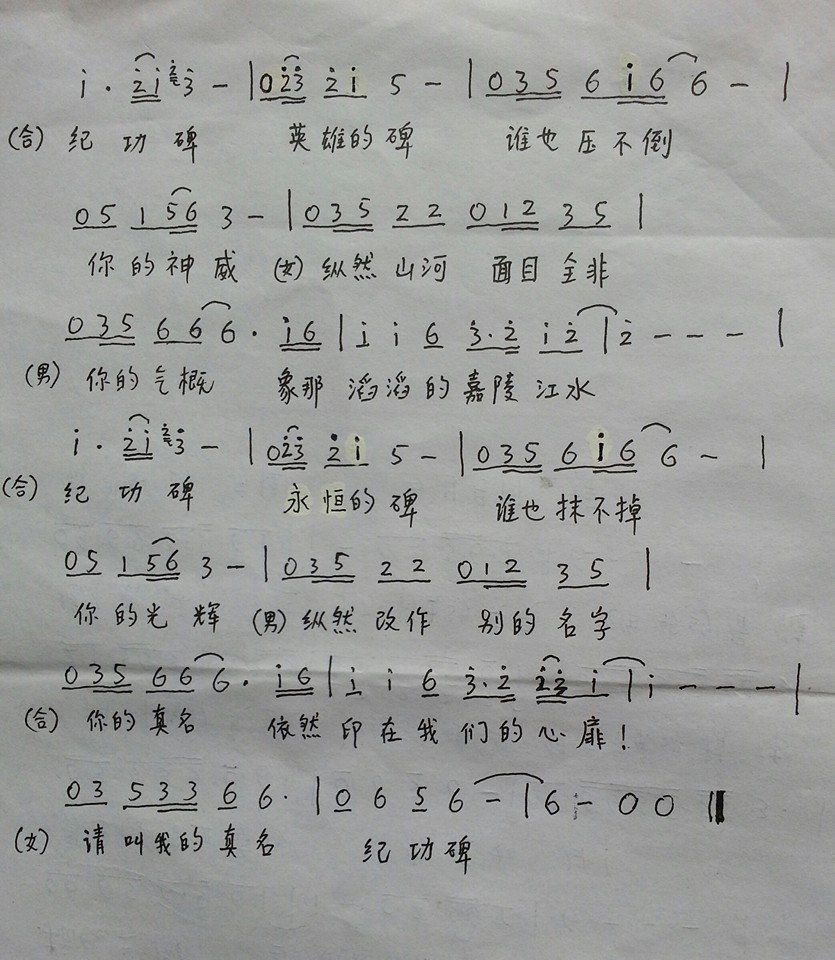 i · 2i 23 3 – | 023 2i 5 – | 035 6i6 6 – |
(合) 纪功碑 英雄的碑 谁也压不倒
05 156 3 – | 035 22 012 35 |
你的神威 (女) 纵然山河 面目全非
035 66 6 · i6 | i i 6 3·2 i2 | 2 – – – |
(男) 你的气概 象那滔滔的嘉陵江水
i · 2i 3 – | 023 2i 5 – | 035 6i6 6 – |
(合) 纪功碑 永恒的碑 谁也抹不掉
05 156 3 – | 035 22 012 35 |
你的光辉 (男) 纵然改作 别的名字
035 66 6 · i6 | i i 6 3·2 i | i – – – |
(合) 你的真名 依然印在我们的心扉!
03 533 6 6 · | 0 6 5 6 – | 6 – 0 0 ‖
(女) 请叫我的真名 纪功碑